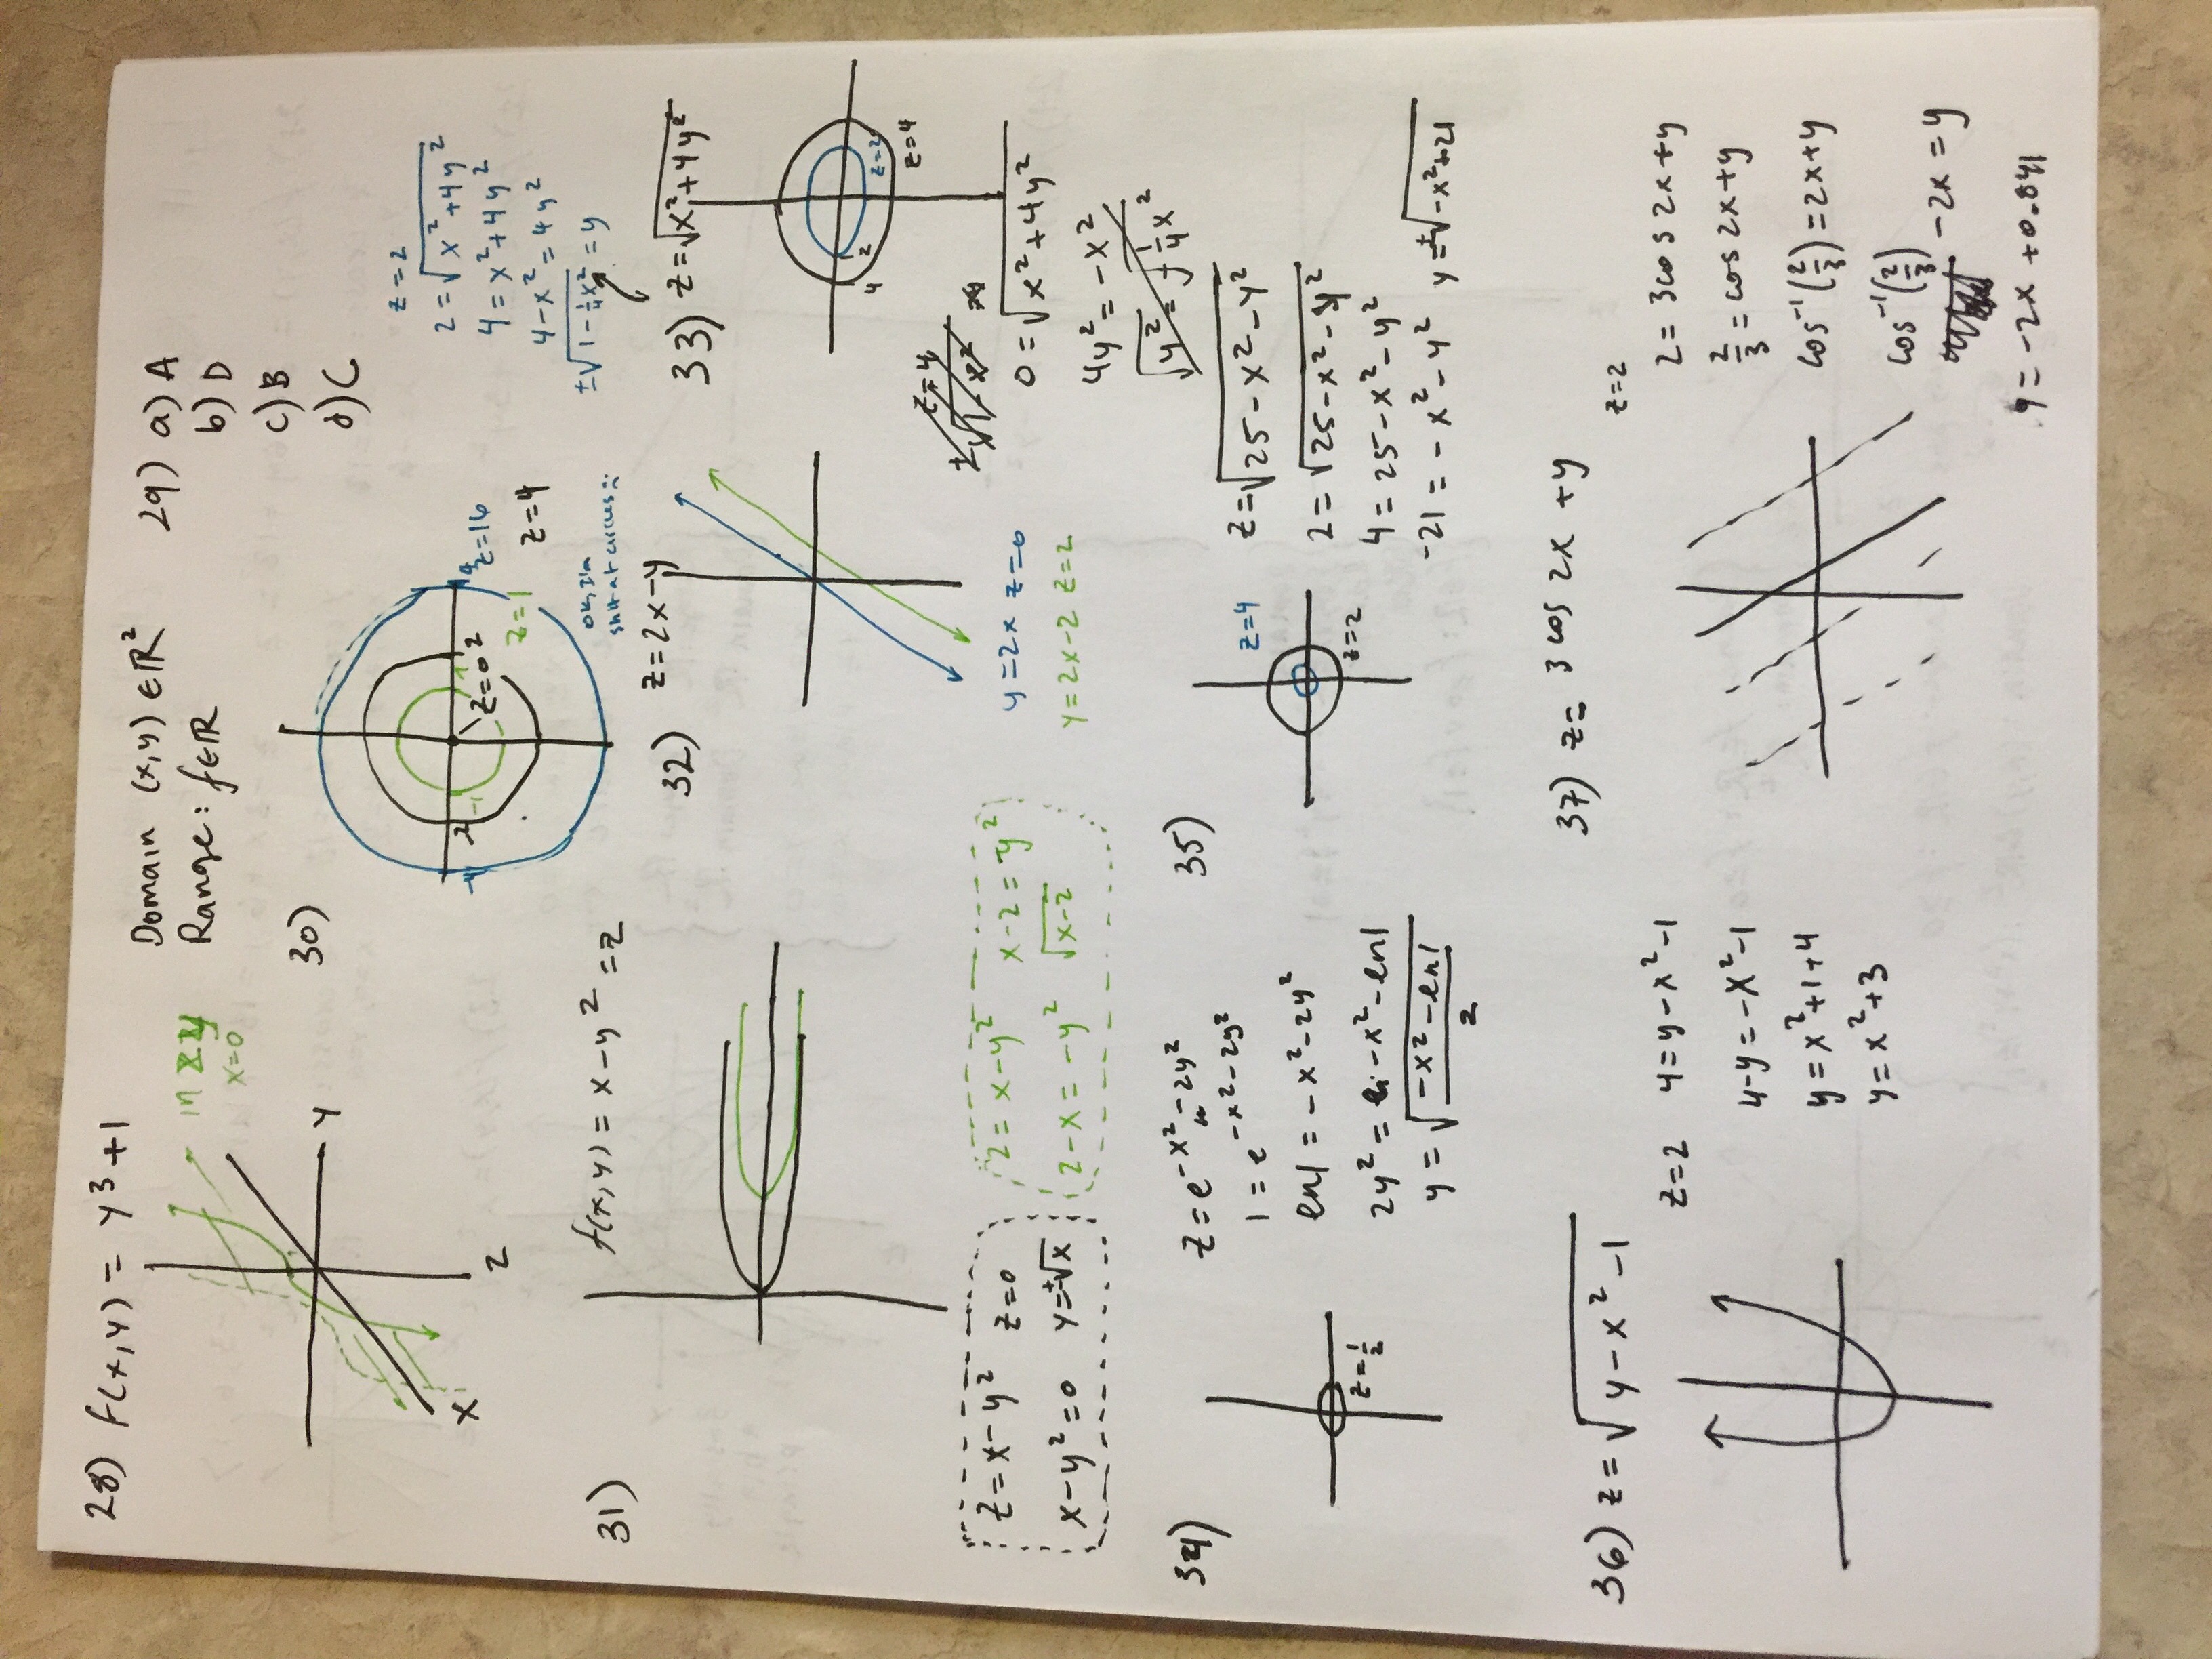 28) f(x,y) = y³+1
in zy
x=0
Y
X
Z
Domain (x,y) ∈ℝ²
Range: f∈ℝ
29) a) A
b) D
c) B
d) C
30)
-4
-2
-1
1
2
4
z=0
z=16
z=1
z=4
ok, I'm
shit at circles :-
31)
f(x,y) = x-y² = z
z=x-y² z=0
x-y²=0 y=±√x
2= x-y² x-2=y²
2-x = -y² √x-2
32) z=2x-y
y=2x z=0
y=2x-2 z=2
z=2
2=√x²+4y²
4=x²+4y²
4-x²=4y²
±√1-¼x² = y
33) z=√x²+4y²
4 2 z=2
z=4
z=4
0=√x²+4y²
4y²=-x²
34)
z=½
z=e^-x²-2y²
1=e^-x²-2y²
en1 = -x²-2y²
2y² = -x²-en1
y=√-x²-en1/2
35)
z=4
z=2
z=√25-x²-y²
2=√25-x²-y²
4=25-x²-y²
-21=-x²-y² y=±√-x²+21
36) z=√y-x²-1
z=2 4=y-x²-1
4-y=-x²-1
y=x²+1+4
y=x²+3
37) z= 3 cos 2x +y
z=2
2=3cos 2x+y
2/3=cos 2x+y
cos⁻¹(2/3)=2x+y
cos⁻¹(2/3) -2x=y
y=-2x+0.841